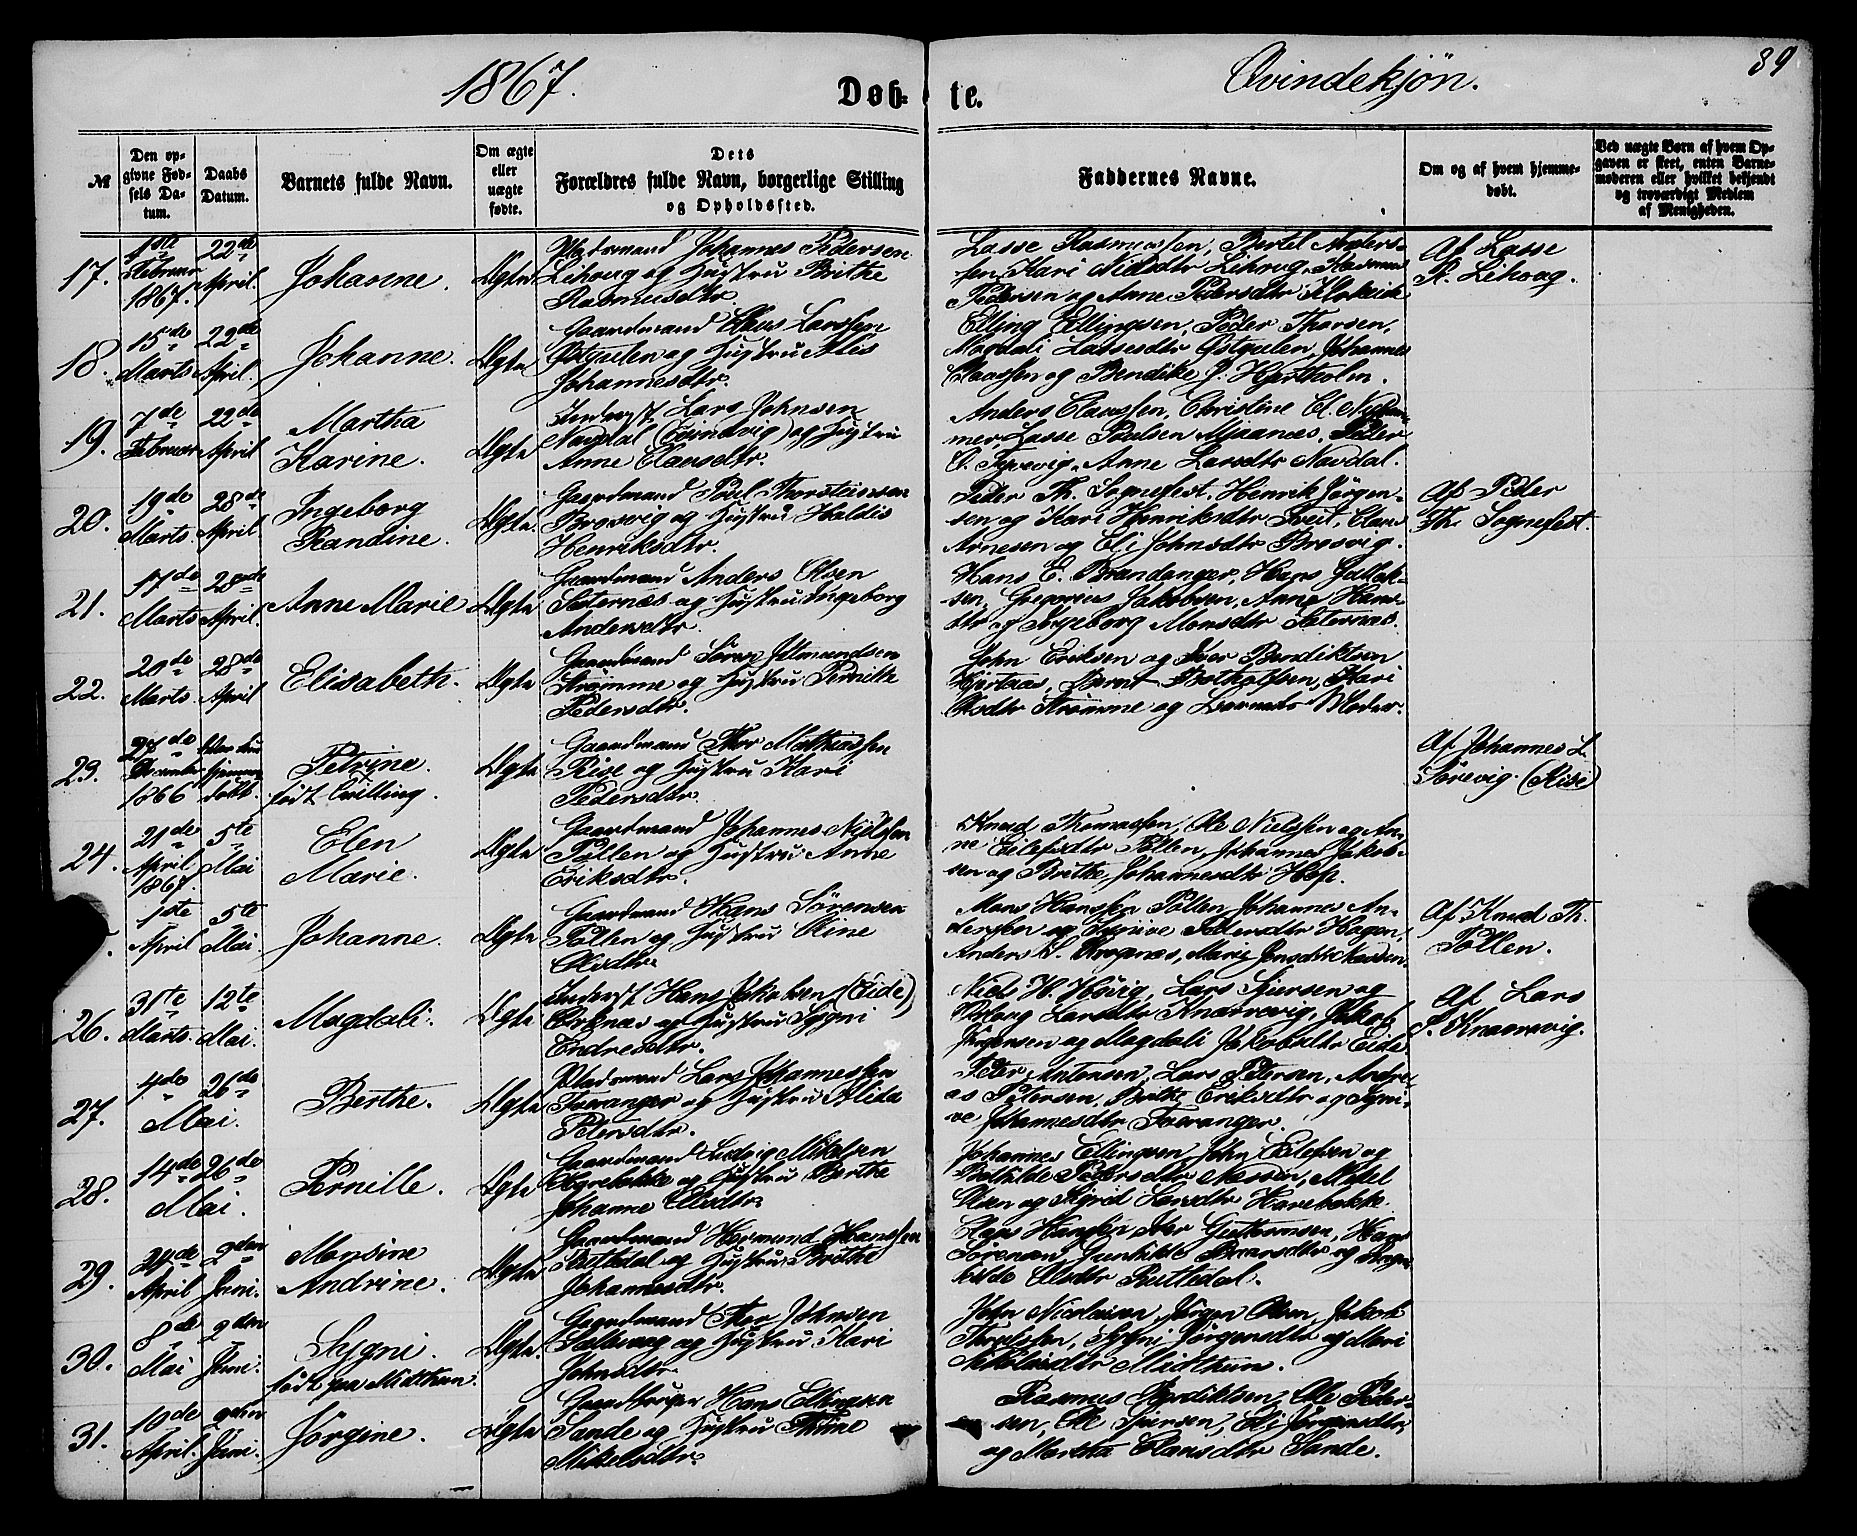 1867.
Døb-
te.
Qvindekjøn.
39
№
Den op-
givne Fød-
sels Da-
tum.
Daabs
Datum.
Barnets fulde Navn.
Om ægte
eller
uægte
fødte.
Dets
Forældres fulde Navn, borgerlige Stilling
og Opholdssted.
Faddernes Navne.
Om og af hvem hjemme-
døbt.
Ved uægte Børn af hvem Op-
gaven er skeet, enten Barne-
moderen eller hvilket bekjendt
og troværdigt Medlem
af Menigheden.
17.
1ste
Februar
1867.
22de
April.
Johanne.
Ægte
Johannes Pedersen
Lihovg og Hustru Brithe
Rasmusdtr.
Lasse Rasmussen, Bertel Anders-
sen, Kari Nilsdtr Lihovg, Rasmus
Pedersen og Anne Pedersdtr
Af Lasse
R. Lihovg.
18.
15de
Marts
22de
April.
Johanne.
Ægte
Gaardmand Claus Larssen
Østgulen og Hustru Alis
Johannesdtr.
Elling Ellingsen, Peder Thorsen,
Magdali Lassesdtr Østgulen, Johannes
Claussen og Bendike J. Hjertholm.
19.
7de
Februar
22de
April
Martha
Karine.
Ægte
Inderst Lars Johnsen
Navdal og Hustru
Anne Clausdtr.
Anders Claussen, Christine Cl. Nyham-
mer, Lasse Poulsen Mjaanes, Peder
O. Tyvevig, Anne Larsdtr Navdal.
20.
19de
Marts
28de
April
Ingeborg
Randine.
Ægte
Gaardmand Poul Thorsteinsen
Brosvig og Hustru Haldis
Henriksdtr.
Peder Th. Sognefest, Henrik Jörgen-
sen og Kari Henriksdtr Claus
Arnesen og Eli Johnsdtr Brosvig.
Af Peder
Th. Sognefest.
21.
17de
Marts
28de
April
Anne Marie
Ægte
Gaardmand Anders Olsen
Seternæs og Hustru Ingeborg
Andersdtr.
Hans E. Brandanger, Hans
sen, Gregorius Jakobsen, Anne Hans-
dtr og Ingeborg Monsdtr Seternæs.
22.
20de
Marts
28de
April
Elisabeth.
Ægte
Gaardmand Sören
Strömme og Hustru Pernille
Pedersdtr.
John Eriksen og Iver Bendiksen
Hjertaas, Bernt Botholfsen, Kari
Olsdtr Strömme og Barnets Moder.
23.
28de
December
1866
Petrine.
født Tvilling.
Ægte
Gaardmand Thor Mathiassen
Riise og Hustru Kari
Pedersdtr.
Af Johannes L.
Sørevig. (Riise)
24.
21de
April
1867.
5te
Mai
Elen
Marie.
Ægte
Gaardmand Johannes Nielssen
Pollen og Hustru Anne
Eriksdtr.
Knud Thomassen, Ole Nielssen og An-
ne Eilifsdtr Pollen, Johannes Jakob-
sen og Brithe Johannesdtr Hop.
1ste
April
5te
Mai
Johanne.
Ægte
Gaardmand Hans Sörensen
Pollen og Hustru Oline
Olsdtr.
Mons Hanssen Pollen, Johannes An-
derssen og Pedersdtr Hagen,
Anders Marie Jensdtr
Af Knud Th.
Pollen.
26.
31te
Marts
12te
Mai.
Magdali.
Ægte
Inderst Hans Jakobsen (Eide)
og Hustru Sygni
Endresdtr.
Niels H. Høvig, Lars Sjursen og
Larsdtr Knarrevig, Jakob
Jörgensen og Magdali Jakobsdtr Eide.
Af Lars
S. Knarrevig.
27.
4de
26de
Mai.
Berthe.
Ægte
Pladsmand Lars Johannessen
Toranger og Hustru Alida
Petersdtr.
Peter Antonsen, Lars Petersen, Andre-
as Petersen, Brithe Eriksdtr og Sygni-
ve Johannesdtr Toranger.
28.
14de
26de
Mai.
Pernille.
Ægte
Gaardmand Ludvig Mikelsen
og Hustru Berthe
Johanne Olsdtr.
Johannes Ellingsen, John Eilefsen og
Bothilde Pedersdtr Næssen, Mikel
Olsen og Sigrid Larsdtr Haverbakke.
29.
24de
April
2den
Juni.
Monsine
Andrine.
Ægte
Gaardmand Hermund Hanssen
Butledal og Hustru Brithe
Johannesdtr.
Claus Hansen, Iver Guthormsen, Hans
Sörensen, Gunhilde og
Olsdtr Rutledal.
30.
8de
Mai
2den
Juni.
Sygni.
født paa Midthun.
Ægte.
Gaardmand Thor Johnsen
og Hustru Kari
Johnsdtr.
John Nicolaisen, Jörgen Olsen, Jakob
Sygni Jörgensdtr og Mari
Nikolaidtr Midthun.
31.
10de
April.
2den
Juni.
Jörgine.
Ægte
Gaardbruger Hans Ellingsen
Sande og Hustru Thrine
Mikelsdtr.
Rasmus Bendiktsen, Ole Peder-
sen, Ole Sjursen, Eli Jörgensdtr,
og Martha Clausdtr Sande.